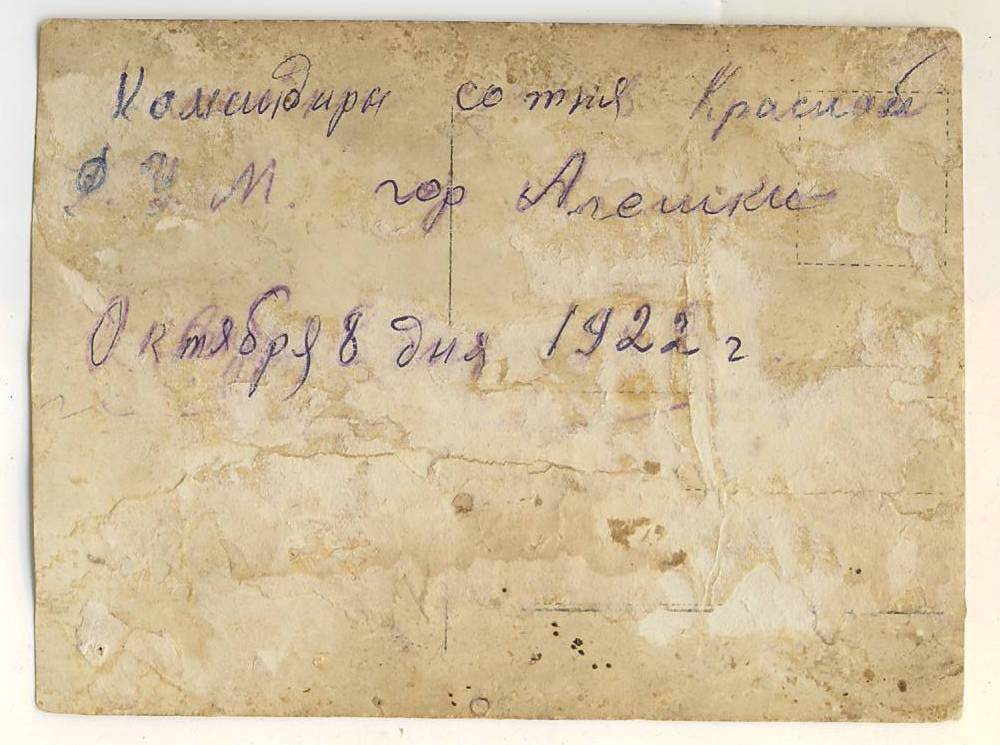 Командиры сотня Красной
Ф. И. М. гор Алешки
Октября 8 дня 1922 г